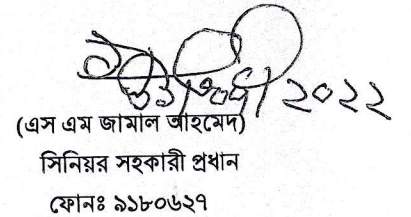 ২০২২
(এস এম জামাল আহমেদ)
সিনিয়র সহকারী প্রধান
ফোনঃ ৯১৮০৬২৭